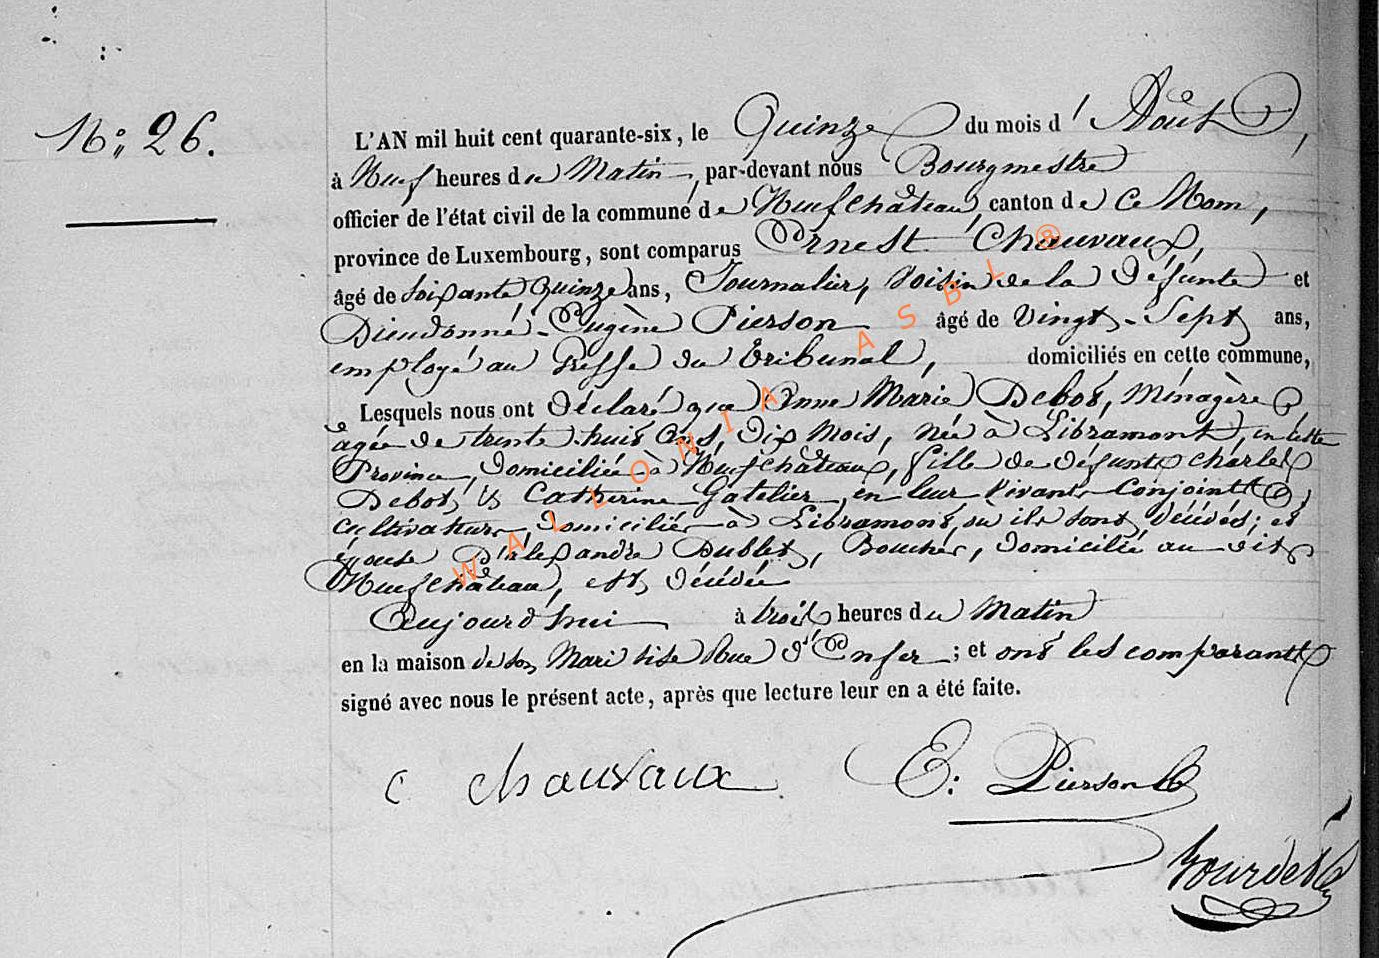 N° 26.
L'AN mil huit cent quarante-six, le Quinze du mois d'Août,
à Neuf heures du Matin, par-devant nous Bourgmestre
officier de l'état civil de la commune de Neufchâteau, canton de ce Nom,
province de Luxembourg, sont comparus Ernest Chauvaux,
âgé de soixante Quinze ans, Journalier, voisin de la Défunte et
Dieudonné-Eugène Pierson âgé de Vingt-Sept ans,
employé au Greffe du Tribunal, domiciliés en cette commune,
Lesquels nous ont Déclaré que Anne Marie Debot, Ménagère
âgée de trente huit Ans, Dix Mois, Née à Libramont, en cette
Province, Domiciliée à Neufchâteau, fille de Défunts Charles
Debot, et Catherine Gatelier, en leur vivant Conjoints,
cultivateurs, Domiciliés à Libramont, où ils sont Décédés; et
épouse D'Alexandre Dublet, Boucher, Domicilié au dit
Neufchâteau, est Décédée
Aujourd'hui à trois heures du Matin
en la maison de son Mari sise Rue d'Enfer; et ont les comparants
signé avec nous le présent acte, après que lecture leur en a été faite.
C chauvaux E. Pierson
WALLONIA ASBL ®